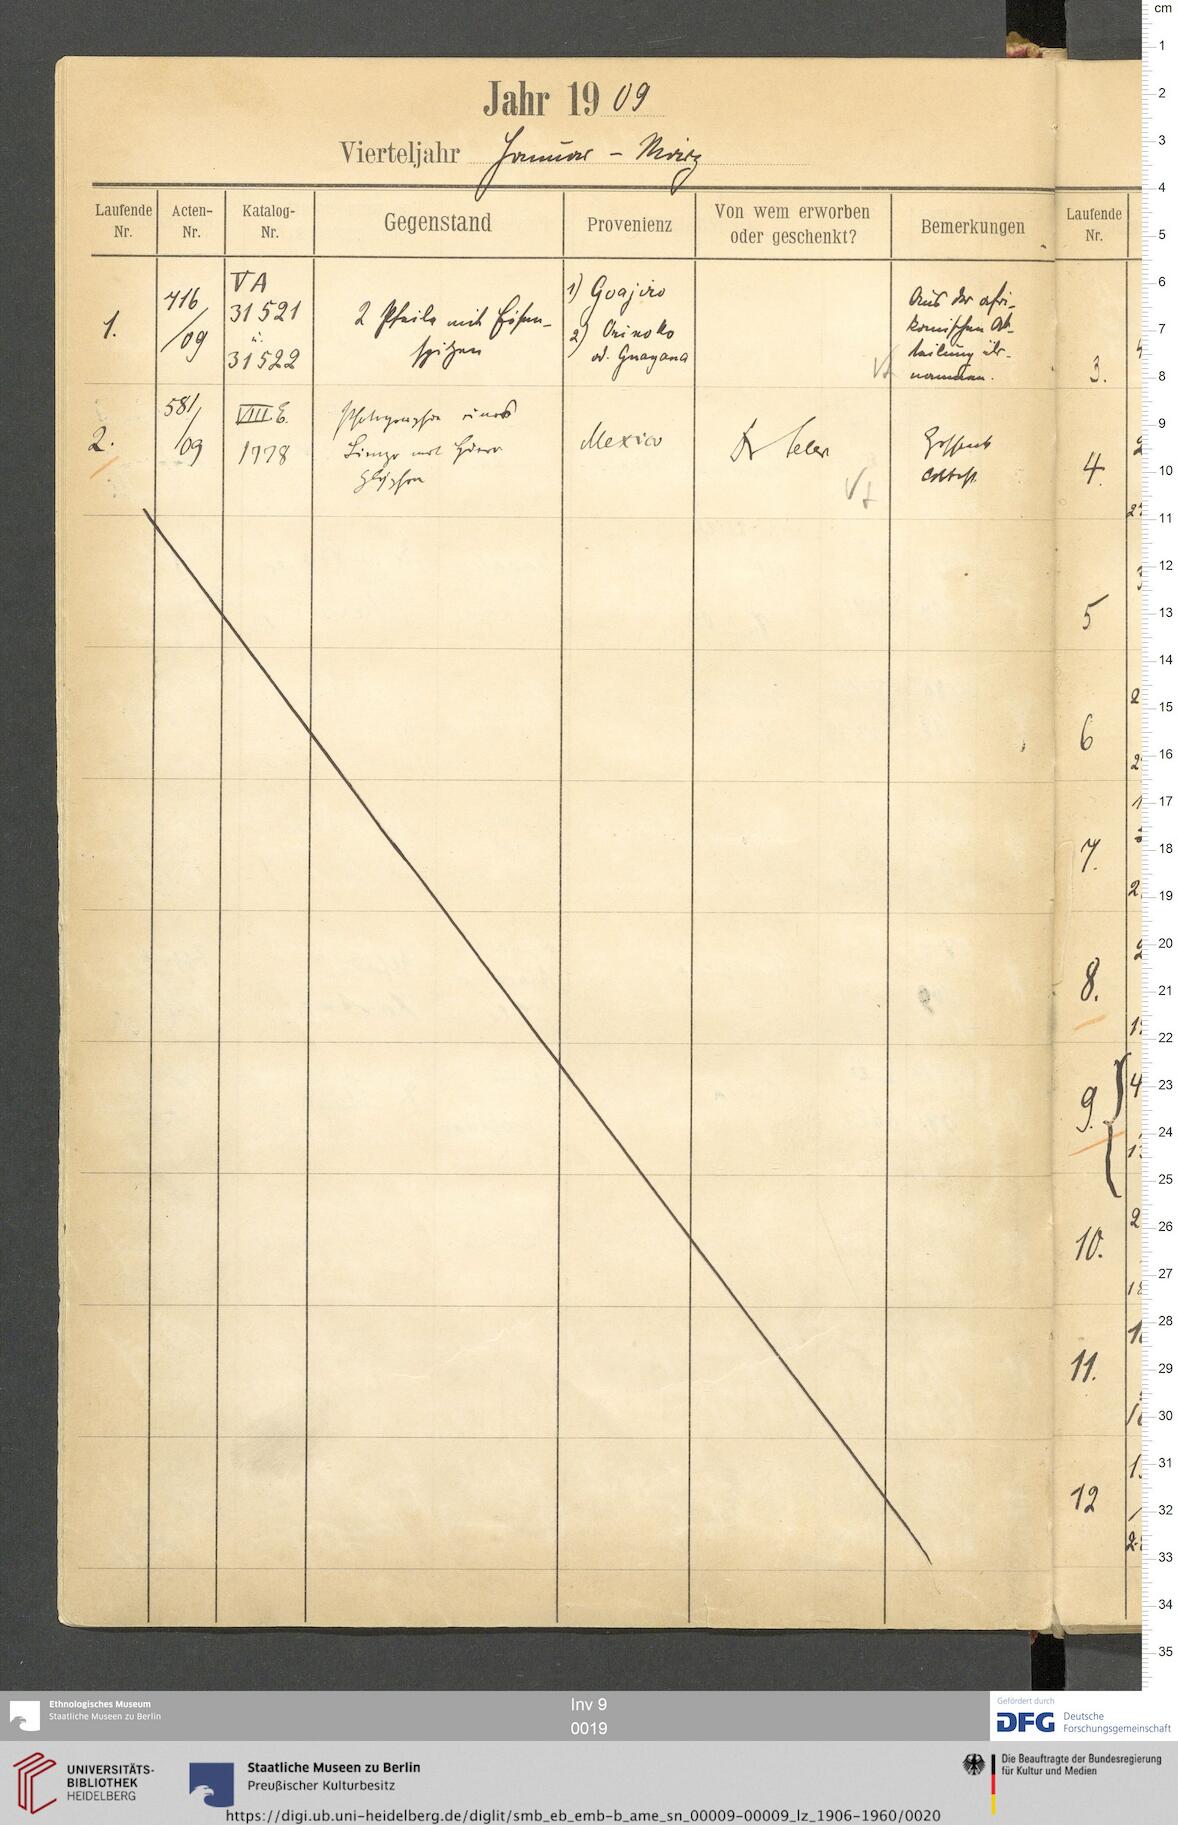 Jahr 1909
Vierteljahr Januar - März
Laufende Nr.
Acten-Nr.
Katalog-Nr.
Gegenstand
Provenienz
Von wem erworben oder geschenkt?
Bemerkungen
Laufende Nr.
1.
716/09
VA
31521
u.
31522
2 Pfeile mit Eisen-
spitzen
1) Goajiro
2) Orinoko
od. Guayana
Aus der afri-
kanischen Ab-
teilung über-
nommen.
2.
581/09
VIII E.
1778
Photographie eines
Lienzo mit
Glyphen
Mexico
Dr Seler
Geschenk
3.
4.
5
6
7.
8.
9.
10.
11.
12
cm
1
2
3
4
5
6
7
8
9
10
11
12
13
14
15
16
17
18
19
20
21
22
23
24
25
26
27
28
29
30
31
32
33
34
35
Ethnologisches Museum
Staatliche Museen zu Berlin
Inv 9
0019
Gefördert durch
DFG Deutsche
Forschungsgemeinschaft
UNIVERSITÄTS-
BIBLIOTHEK
HEIDELBERG
Staatliche Museen zu Berlin
Preußischer Kulturbesitz
Die Beauftragte der Bundesregierung
für Kultur und Medien
https://digi.ub.uni-heidelberg.de/diglit/smb_eb_emb-b_ame_sn_00009-00009_lz_1906-1960/0020